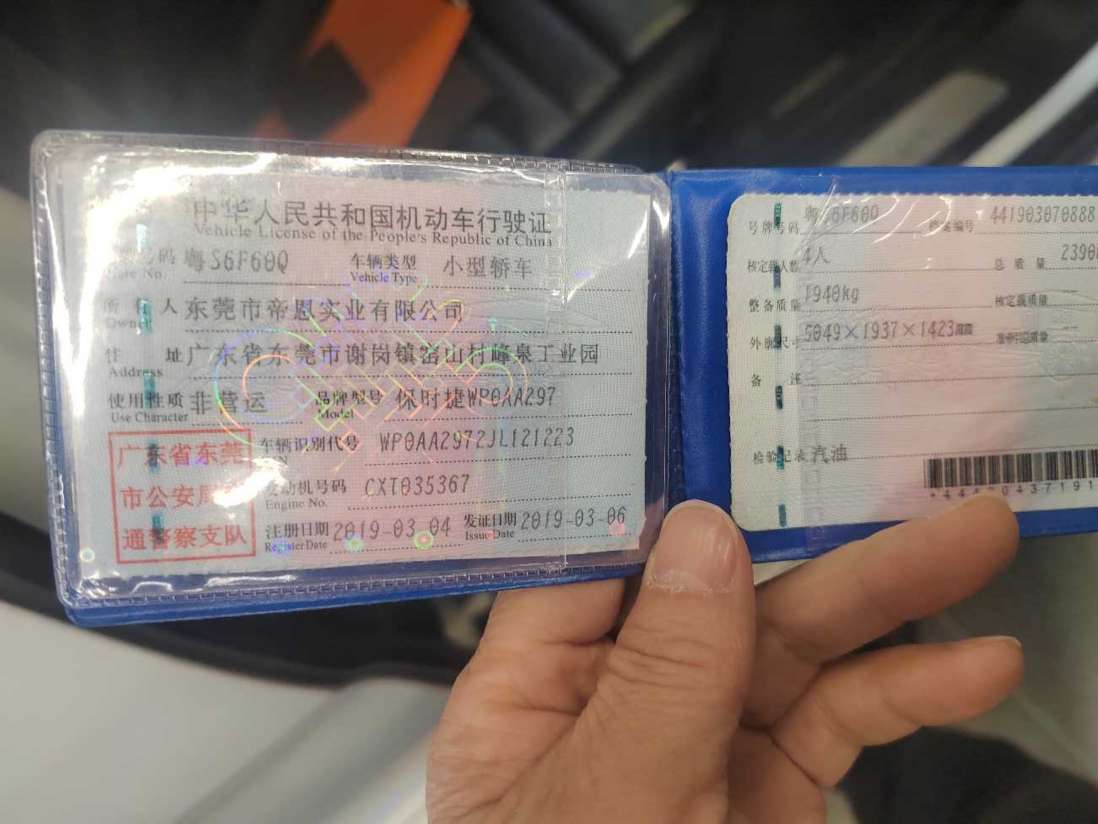 中华人民共和国机动车行驶证
Vehicle License of the People's Republic of China
号码 粤S6F60Q 车辆类型 小型轿车
Plate No. Vehicle Type
所有人 东莞市帝恩实业有限公司
Owner
住 址 广东省东莞市谢岗镇 山村峰泉工业园
Address
使用性质 非营运 品牌型号 保时捷WP0AA297
Use Character Model
广东省东莞
市公安局
通警察支队
车辆识别代号 WP0AA2972JL121223
VIN
发动机号码 CXT035367
Engine No.
注册日期 2019-03-04 发证日期 2019-03-06
Register Date Issue Date
号牌号码 粤S6F60Q 档案编号 441903070888
核定载人数 4人 总质量 2390
整备质量 1940kg 核定载质量
外廓尺寸 5049×1937×1423 准牵引总质量
备 注
检验记录 汽油